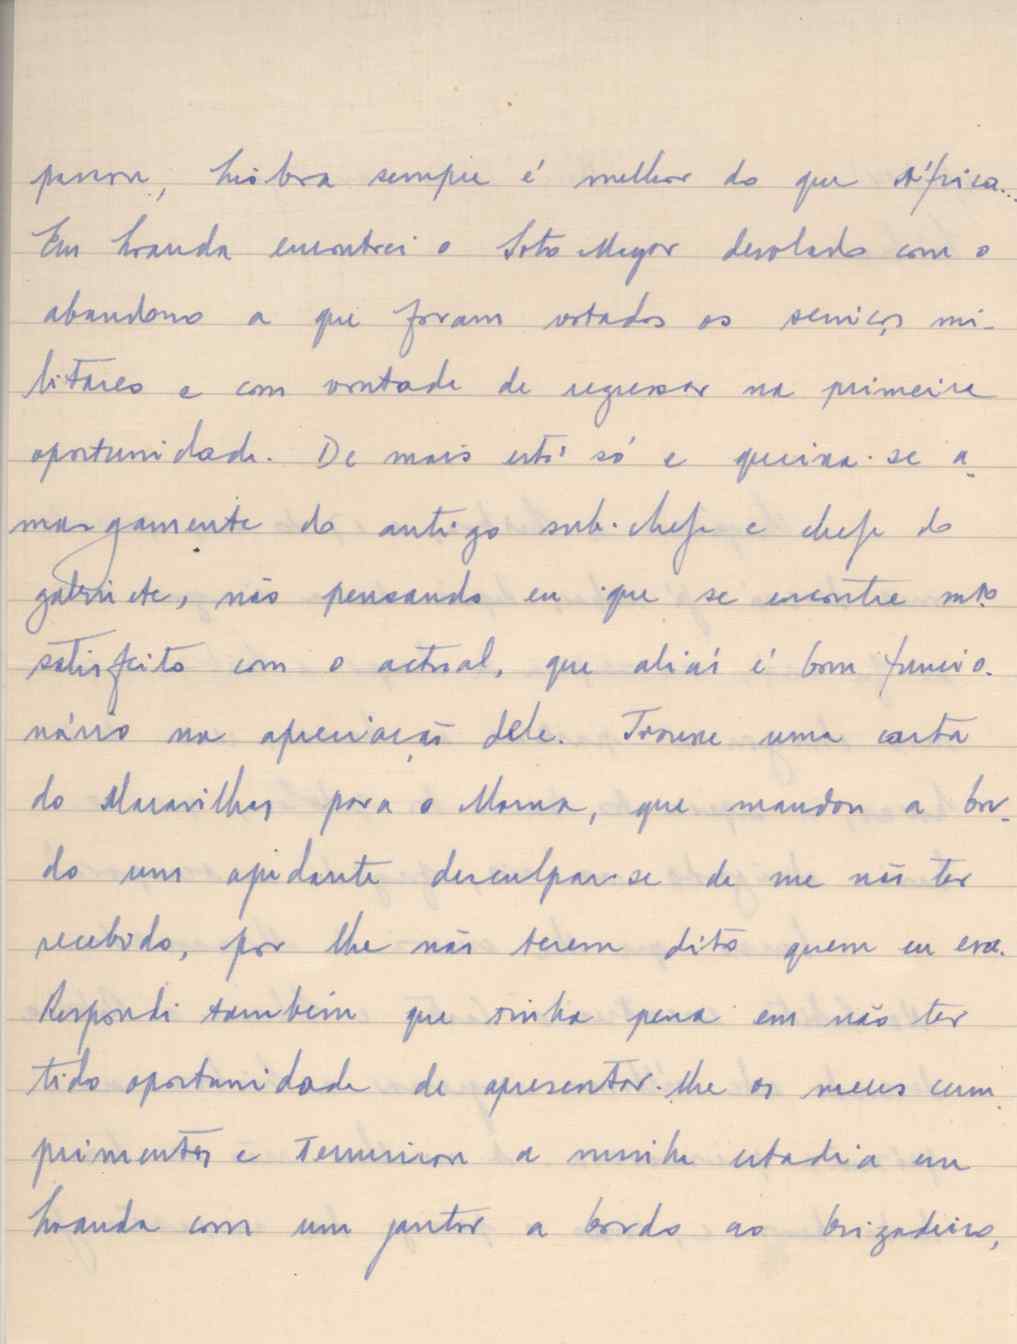 passou, Lisboa sempre é melhor do que África...
Em Loanda encontrei o Soto Mayor desolado com o
abandono a que foram votados os serviços mi-
litares e com vontade de regressar na primeira
oportunidade. De mais está só e queixa-se a-
margamente do antigo sub-chefe e chefe do
gabinete, não pensando eu que se encontre mto
satisfeito com o actual, que aliás é bom funcio-
nário na apreciação dele. Trouxe uma carta
do Maravilhas para o Morna, que mandou a bor-
do um ajudante desculpar-se de me não ter
recebido, por lhe não terem dito quem eu era.
Respondi também que tinha pena em não ter
tido oportunidade de apresentar-lhe os meus cum-
primentos e terminou a minha estadia em
Loanda com um jantar a bordo ao brigadeiro,